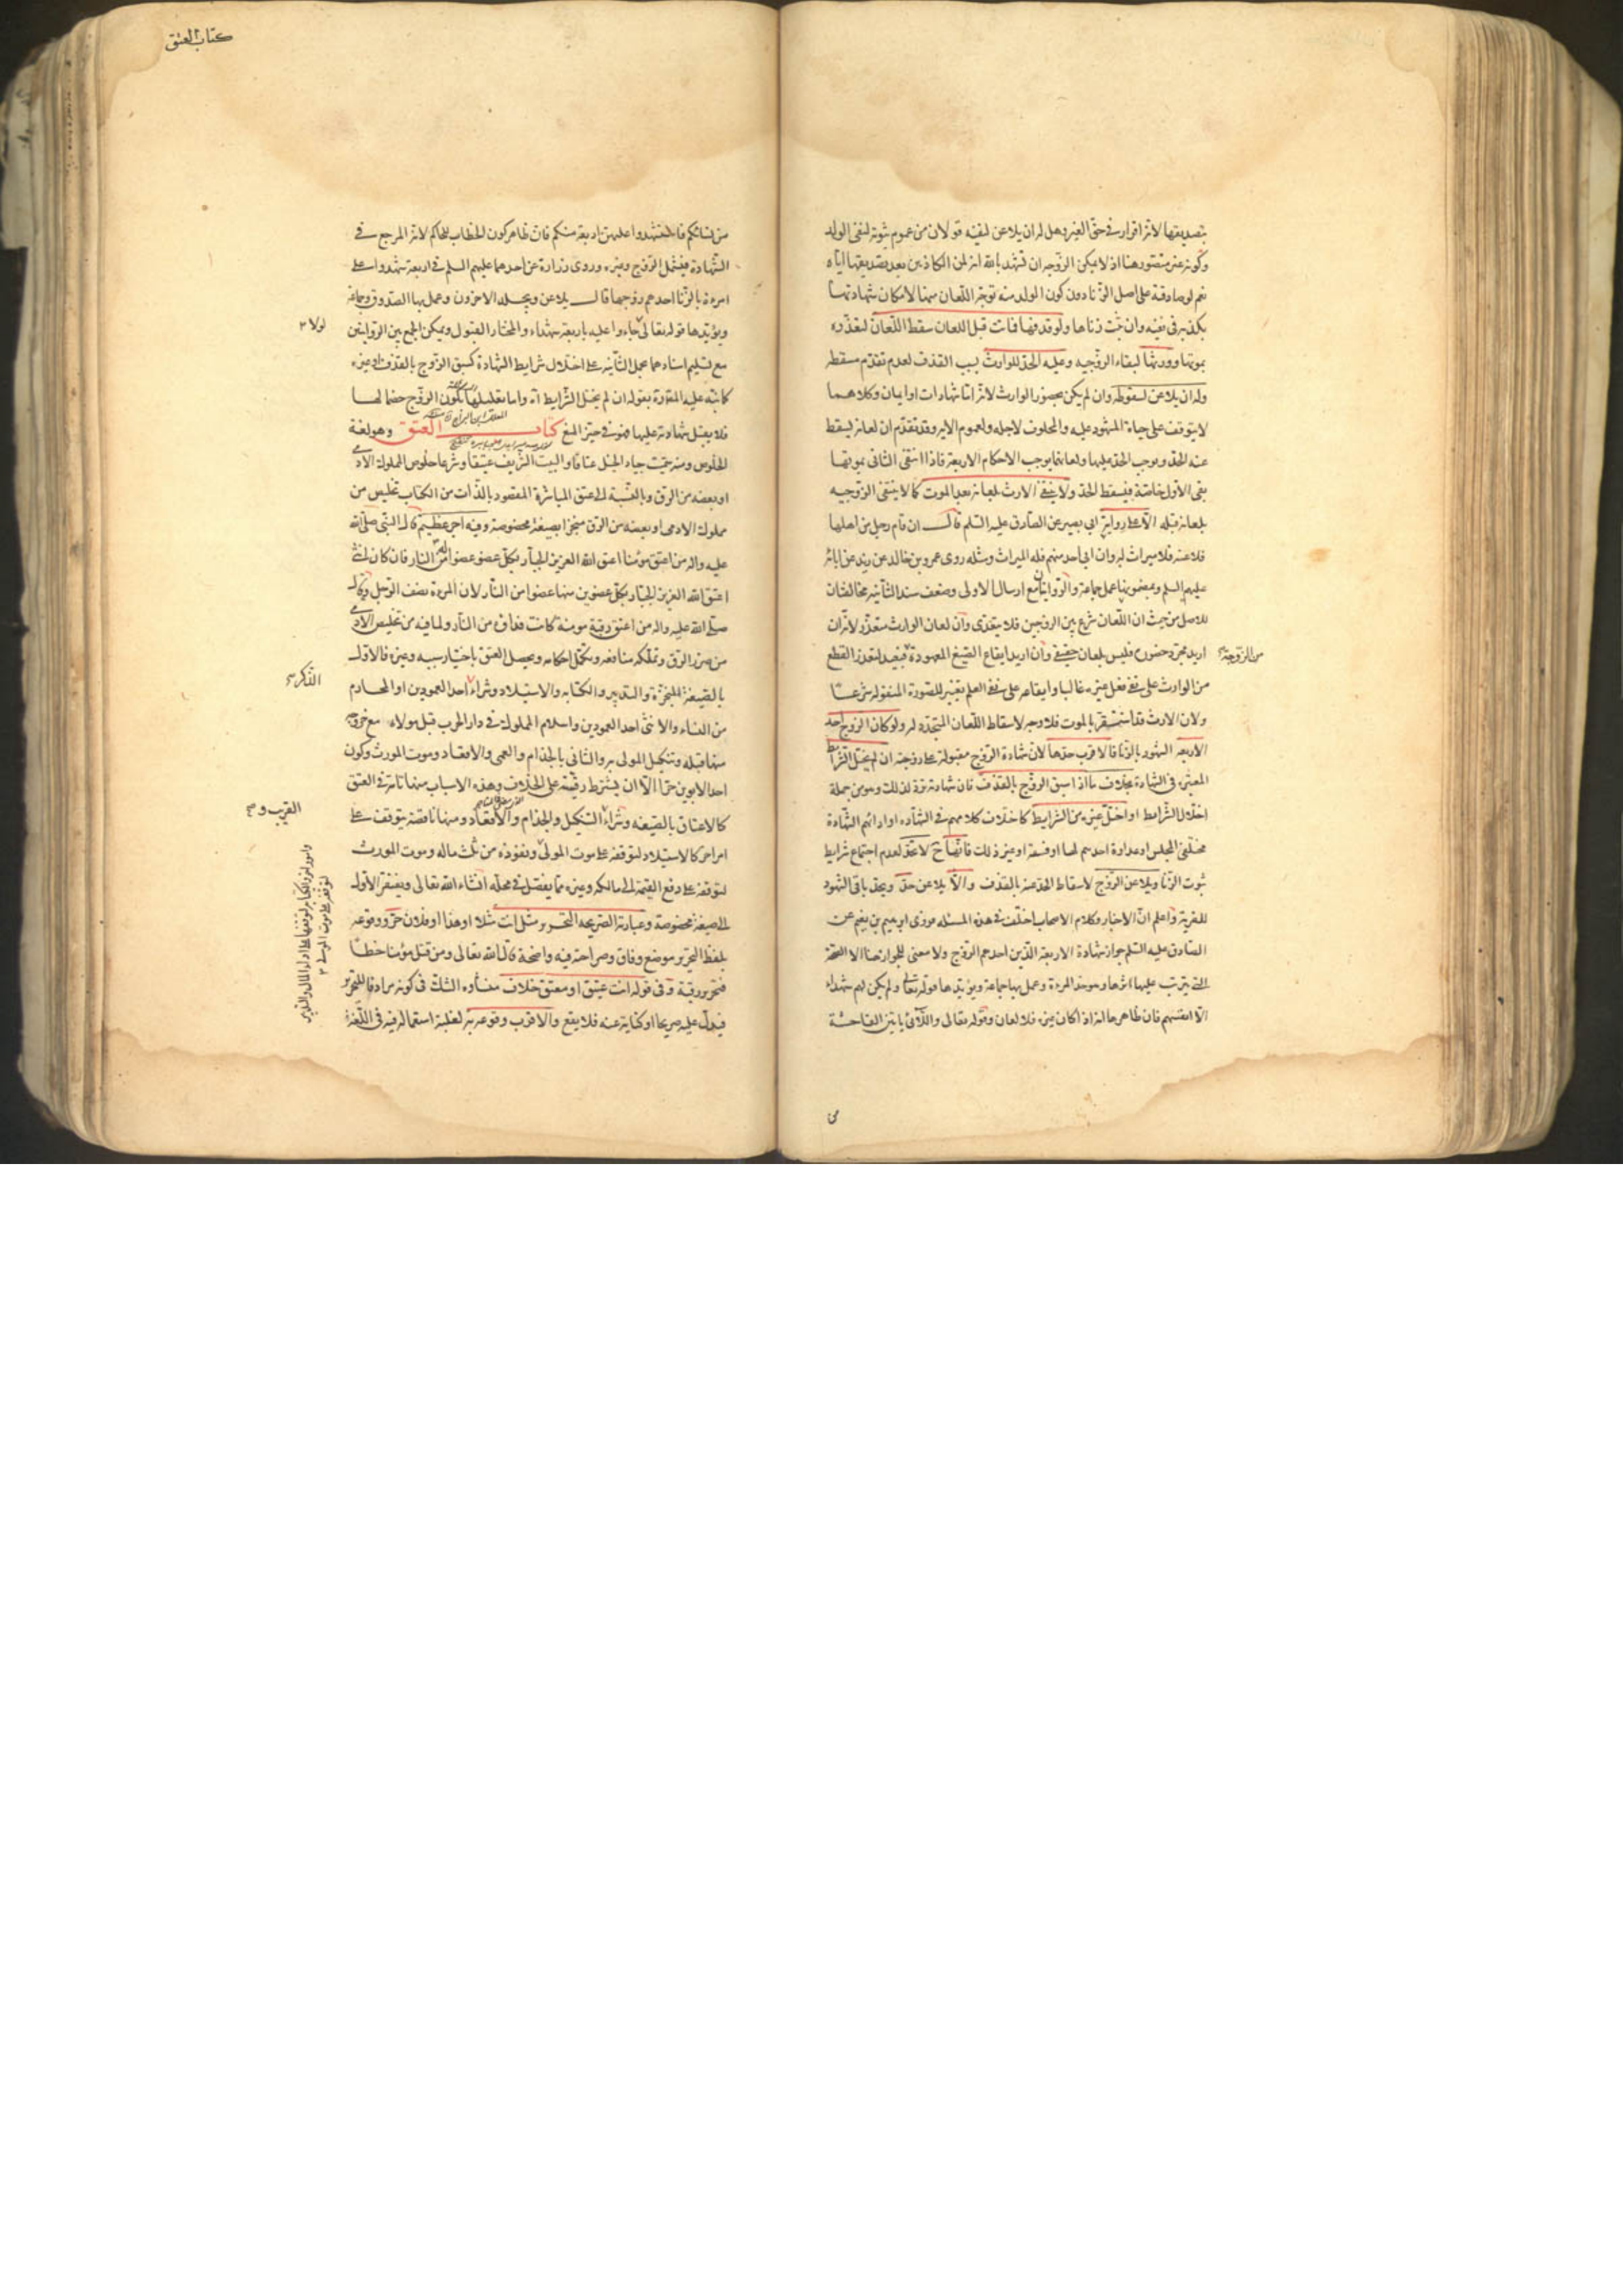 بتصديقها لانه اقرار في حق الغير وهل له ان يلاعن لنفيه قولان من عموم ثبوته لنفي الولد
وكونه غير متصور هنا اذ لا يمكن الزوجه ان تشهد بالله انه لمن الكاذبين بعد تصديقها اياه
نعم لو صادقته على اصل الزنا دون كون الولد منه توجه اللعان منها لامكان شهادتها
بكذبه في نفيه وان ثبت زناها ولو قذفها فماتت قبل اللعان سقط اللعان لتعذره
بموتها وورثها لبقاء الزوجيه وعليه الحد للوارث بسبب القذف لعدم تقدم مسقطه
وله ان يلاعن لسقوطه وان لم يكن بحضور الوارث لانه اما شهادات او ايمان وكلاهما
لا يتوقف على حياة المشهود عليه والمحلوف لاجله ولعموم الايه وقد تقدم ان لعانه يسقط
عنه الحد ويوجب الحد عليها ولعانهما يوجب الاحكام الاربعة فاذا انتفى الثاني بموتها
بقى الاول خاصة فيسقط الحد ولا ينتفي الارث بلعانه بعد الموت كما لا ينتفي الزوجيه
بلعانه قبله الا على رواية ابي بصير عن الصادق عليه السلم قال ان قام رجل من اهلها
فلاعنه فلا ميراث له وان ابى احد منهم فله الميراث ومثله روى عمرو بن خالد عن زيد عن ابائه
عليهم السلم وبمضمونها عمل جماعة والروايتان مع ارسال الاولى وضعف سند الثانيه مخالفتان
للاصل من حيث ان اللعان شرع بين الزوجين فلا يتعدى وان لعان الوارث متعذر لانه ان
اريد مجرد حضوره فليس بلعان حقيقي وان اريد ايقاع الصيغ المعهودة فبعيد لتعذر القطع
من الزوجة
من الوارث على نفي فعل غيره غالبا وايقاعه على نفي العلم تغيير للصورة المنقولة شرعا
ولان الارث قد استقر بالموت فلا وجه لاسقاط اللعان المتجدد له ولو كان الزوج احد
الاربعه الشهود بالزنا فالاقرب حدها لان شهادة الزوج مقبولة على زوجته ان لم يختل الشرايط
المعتبره في الشهادة بخلاف ما اذا سبق الزوج بالقذف فان شهادته ترد لذلك وهو من جملة
اختلال الشرايط او اختل غيره من الشرايط كاختلاف كلامهم في الشهادة او ادائهم الشهادة
مختلفي المجلس او عداوة احدهم لها او فسقه او غير ذلك فانها ح لا تحد لعدم اجتماع شرايط
ثبوت الزنا ويلاعن الزوج لاسقاط الحد عنه بالقذف والا يلاعن حد ويحد باقي الشهود
للفرية واعلم ان الاخبار وكلام الاصحاب اختلف في هذه المسئلة فروى ابرهيم بن نعيم عن
الصادق عليه السلم جواز شهادة الاربعة الذين احدهم الزوج ولا معنى للجواز هنا الا الصحة
التي يترتب عليها اثرها وهو حد المرءة وعمل بها جماعة ويؤيدها قوله تعالى ولم يكن لهم شهداء
الا انفسهم فان ظاهرها انه اذا كان غيره فلا لعان وقوله تعالى واللاتي ياتين الفاحشة
من
كتاب العتق
من نسائكم فاستشهدوا عليهن اربعة منكم فان ظاهر كون الخطاب للحاكم لانه المرجع في
الشهادة فيشمل الزوج وغيره وروى زرارة عن احدهما عليهم السلم في اربعة شهدوا على
امرءة بالزنا احدهم زوجها قال يلاعن ويجلد الاخرون وعمل بها الصدوق وجماعة
ويؤيدها قوله تعالى جاءوا عليه باربعة شهداء والمختار القبول ويمكن الجمع بين الروايتين
لولا
مع تسليم اسنادهما بحمل الثانيه على اختلال شرايط الشهادة كسبق الزوج بالقذف او غيره
كما نبه عليه المصنف بقوله ان لم يختل الشرايط اه واما تعليلها بكون الزوج خصما لها
فلا يقبل شهادته عليها فهو في حيز المنع كتاب العتق وهو لغة
الخلوص ومنه سميت جياد الخيل عتاقا والبيت الشريف عتيقا وشرعا خلوص المملوك الادمي
او بعضه من الرق وبالنسبة الى عتق المباشرة المقصود بالذات من الكتاب تخليص من
مملوك الادمى او بعضه من الرق منجزا بصيغة مخصوصة وفيه اجر عظيم قال النبي صلى الله
عليه واله من اعتق مؤمنا اعتق الله العزيز الجبار بكل عضو عضوا له من النار فان كان انثى
اعتق الله العزيز الجبار بكل عضوين منها عضوا من النار لان المرءة نصف الرجل وقال
صلى الله عليه واله من اعتق رقبة مؤمنة كانت فداؤه من النار ولما فيه من تخليص الادمي
من ضرر الرق وتملكه منافعه وتكمل احكامه ويحصل العتق باختيار سببه وغيره فالاول
بالصيغة المنجزة والتدبير والكتابه والاستيلاد وشراء احد العمودين او المحارم
الذكر
من النساء والانثى احد العمودين واسلام المملوك في دار الحرب قبل مولاه مع خروجه
منها قبله وتنكيل المولى به والثاني بالجذام والعمى والاقعاد وموت المورث وكون
احد الابوين حرا الا ان يشترط رقيته على الخلاف وهذه الاسباب منها تامة في العتق
كالاعتاق بالصيغه وشراء التنكيل والجذام والاقعاد ومنها ناقصة يتوقف على
القريب و
امر اخر كالاستيلاد لتوقفه على موت المولى ونفوذه من ثلث ماله وموت المورث
لتوقفه على دفع القيمة الى مالكه وغيره مما يفصل في محله انشاء الله تعالى ويفتقر الاول
الى صيغة مخصوصة وعبارته الصريحة التحرير مثل انت مثلا او هذا او فلان حر ووقوعه
بلفظ التحرير موضع وفاق وصراحته فيه واضحة قال الله تعالى ومن قتل مؤمنا خطئا
فتحرير رقبة وفي قوله انت عتيق او معتق خلاف منشأوه الشك في كونه مرادفا للتحرير
فيدل عليه صريحا او كناية عنه فلا يقع والاقرب وقوعه به لغلبة استعماله فيه في اللغة